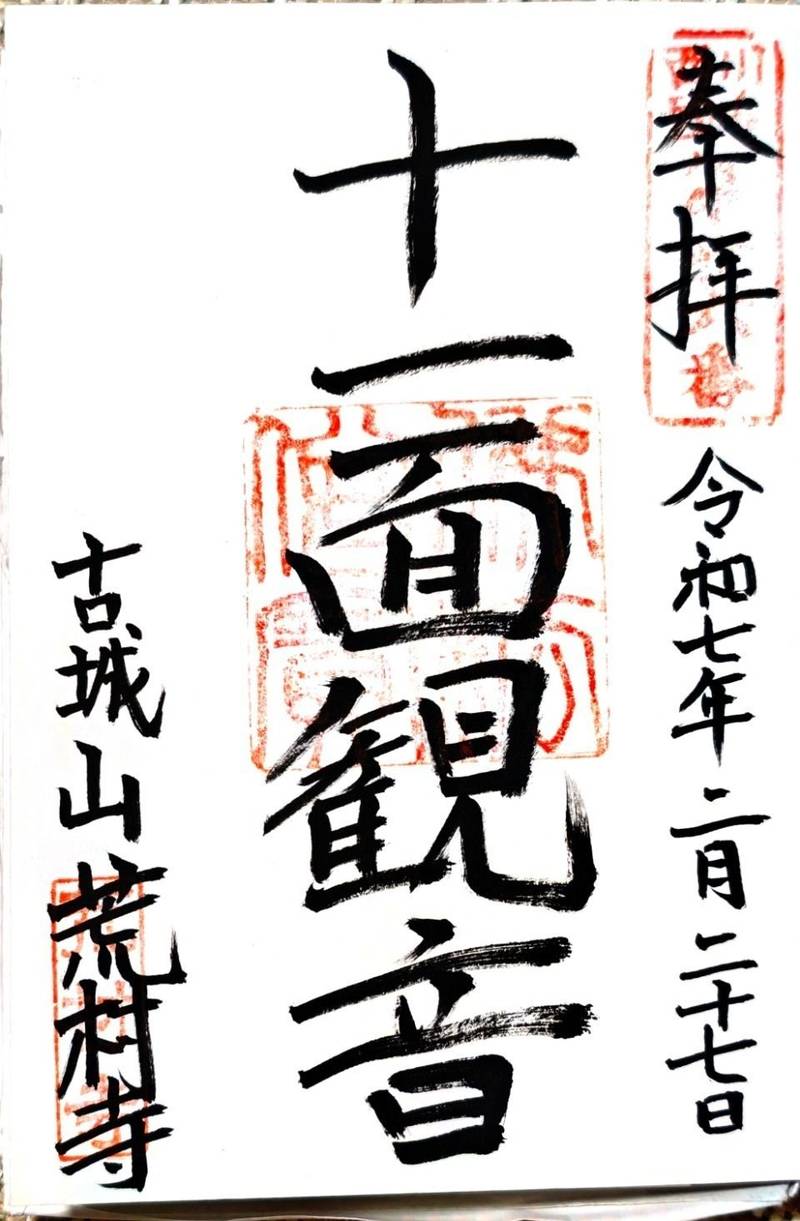 奉拝
令和七年二月二十七日
十一面観音
古城山荒村寺